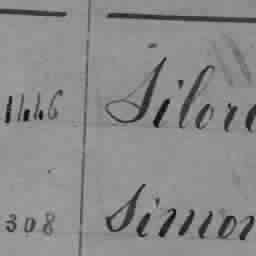 1446 Silore
308 Simon